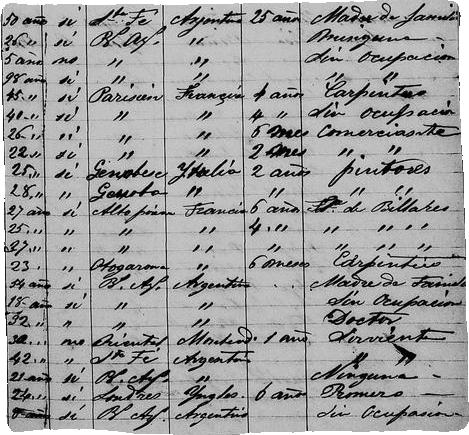 50 año sí Sta Fé Argentina 25 años Madre de familia
26 " sí Bs. Ays. " Ninguna -
5 año no " " Sin ocupacion
98 año sí " " " "
45 " sí Parisien Francia 4 años Carpintero
40 " sí " " 4 " Sin ocupación
26 " " " 6 mes Comerciante
22 " sí " " 2 mes " "
25 " sí Genobes Ytalia 2 años pintores
28 " " Genoba " " " "
27 año sí Francia 6 años de Billares
25 " " " " 4 " " " " "
27 " " " " " " " " "
23 " " " 6 meses Carpintero
54 año sí Bs. Ays. Argentin Madre de Famil
18 año sí " " Sin ocupacion
32 " " " " Doctor
no Oriental Montevid. 1 año Sirviente
42 " " Sta Fé Argentin " "
21 año sí Bs. Ays. " Ninguna -
24 " sí Londres Yngles. 6 año Romero -
año sí Bs. Ays. Argentin Sin ocupasion